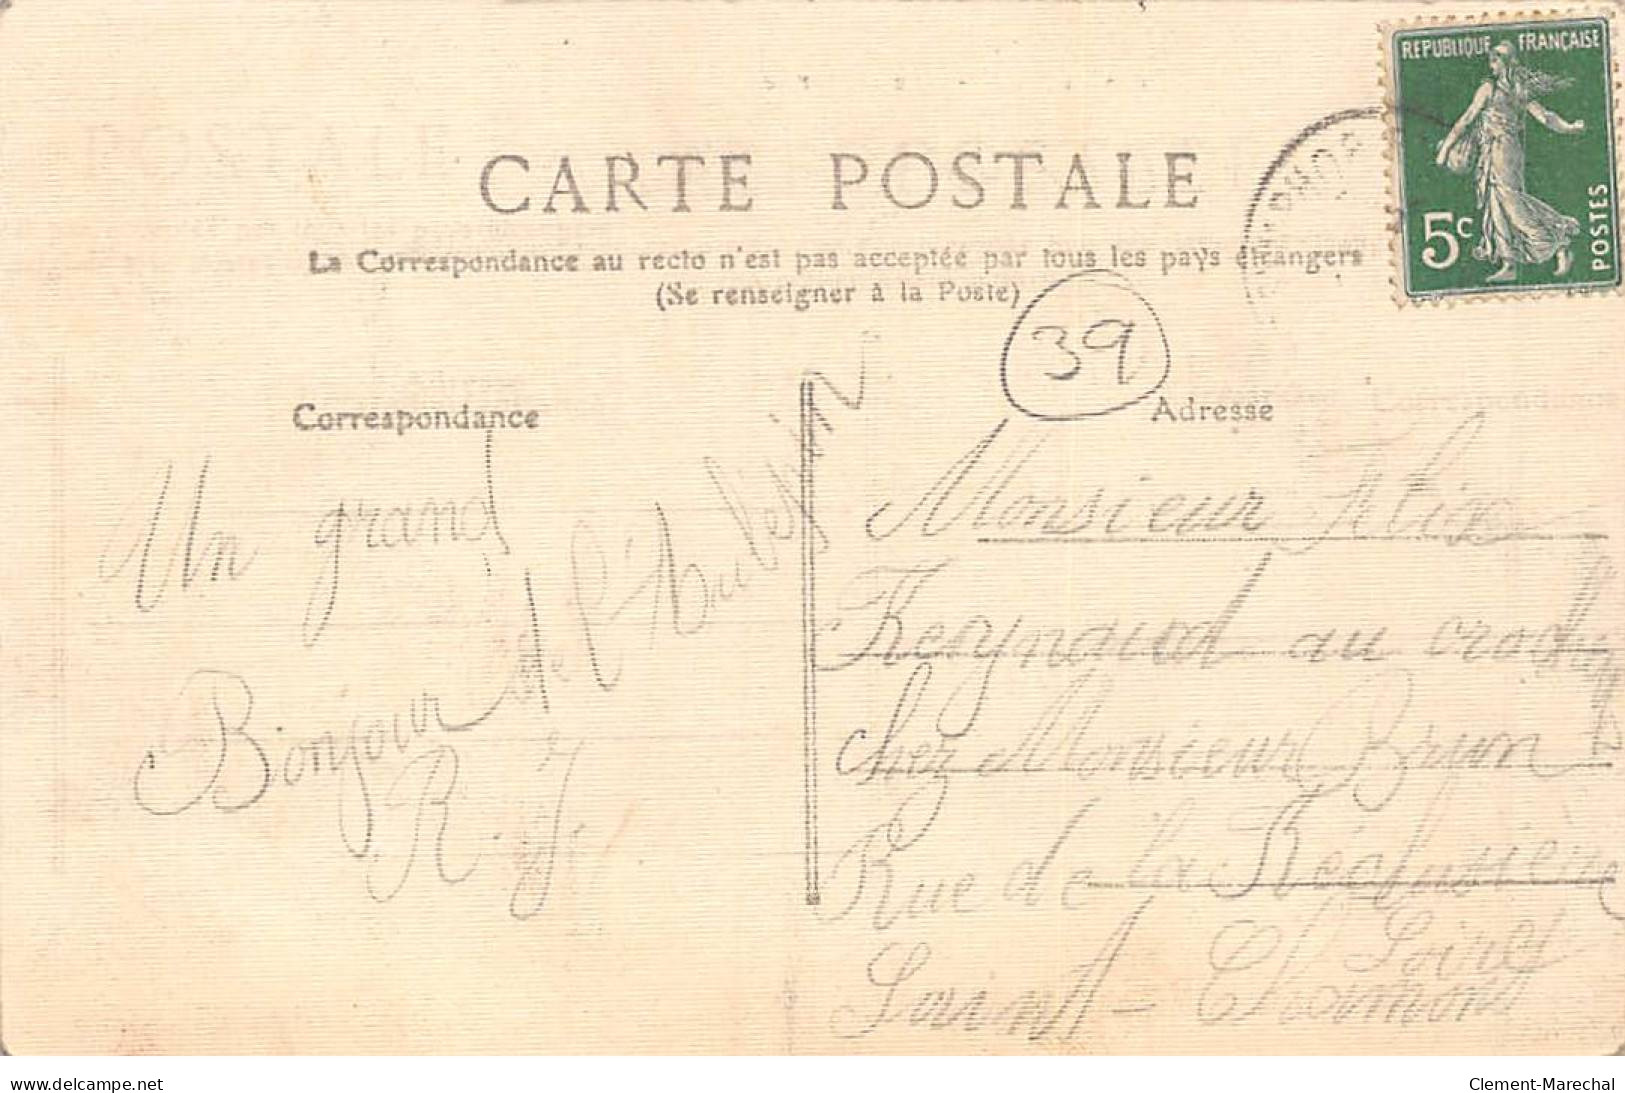 RÉPUBLIQUE FRANÇAISE
5c
POSTES
CARTE POSTALE
La Correspondance au recto n'est pas acceptée par tous les pays étrangers
(Se renseigner à la Poste)
39
Correspondance
Un grand
Bonjour de
R. J.
Adresse
Monsieur Alix
Reynaud au
chez Monsieur
Rue de la
Loire
Saint-Chamond
www.delcampe.net
Clement-Marechal